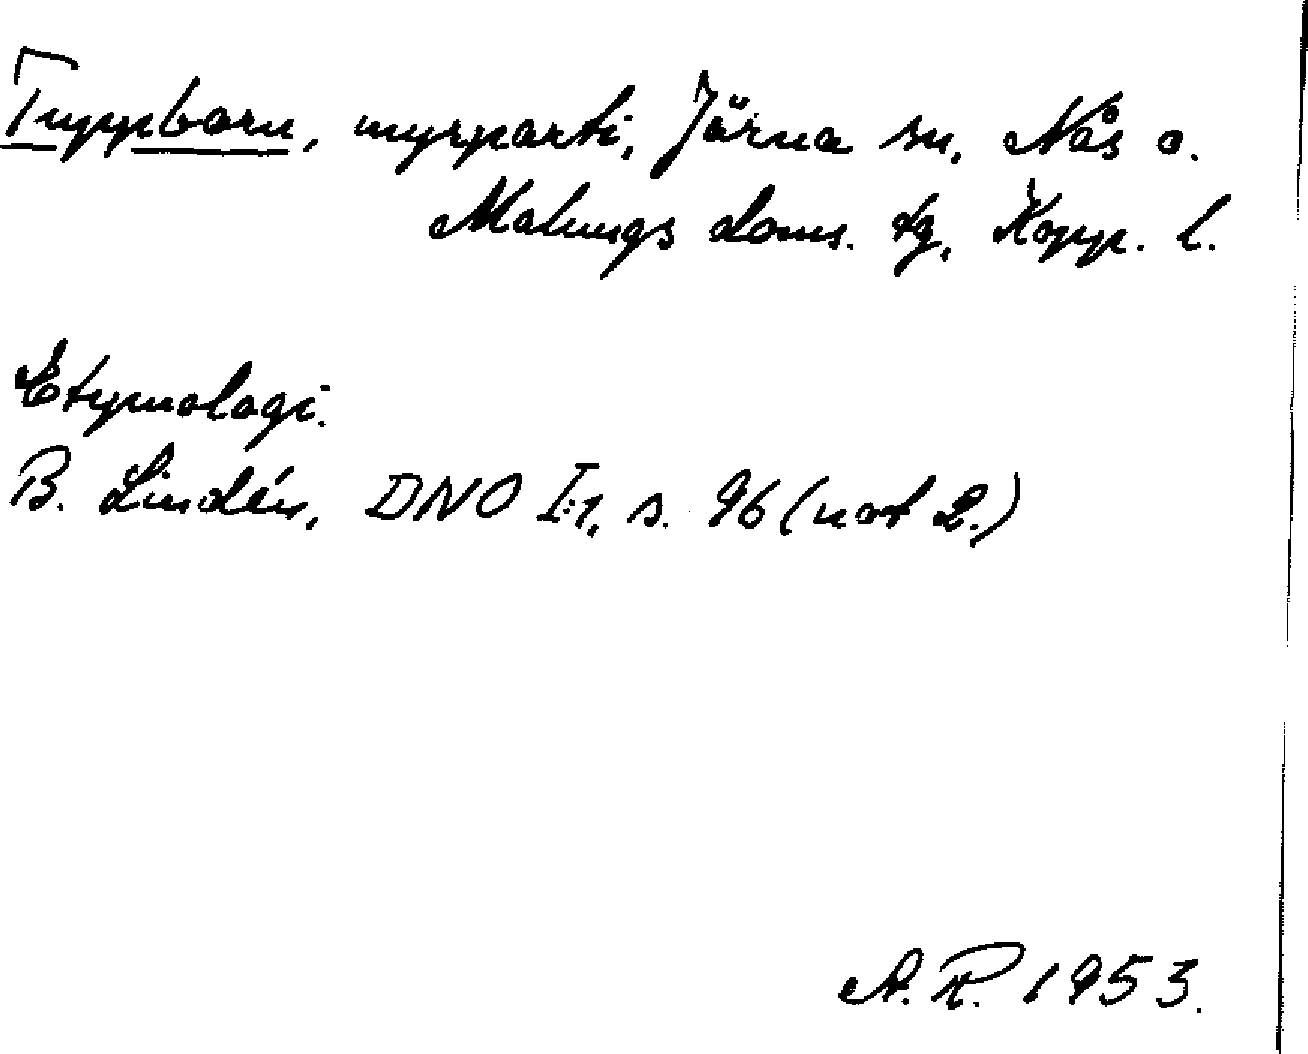 Tryppborn, myrparti, Järna sn, Nås o.
Malungs doms. tg, Kopp. l.
Etymologi.
B. Lindén, DNO I:1, s. 96 (not 2.)
A.R. 1953.